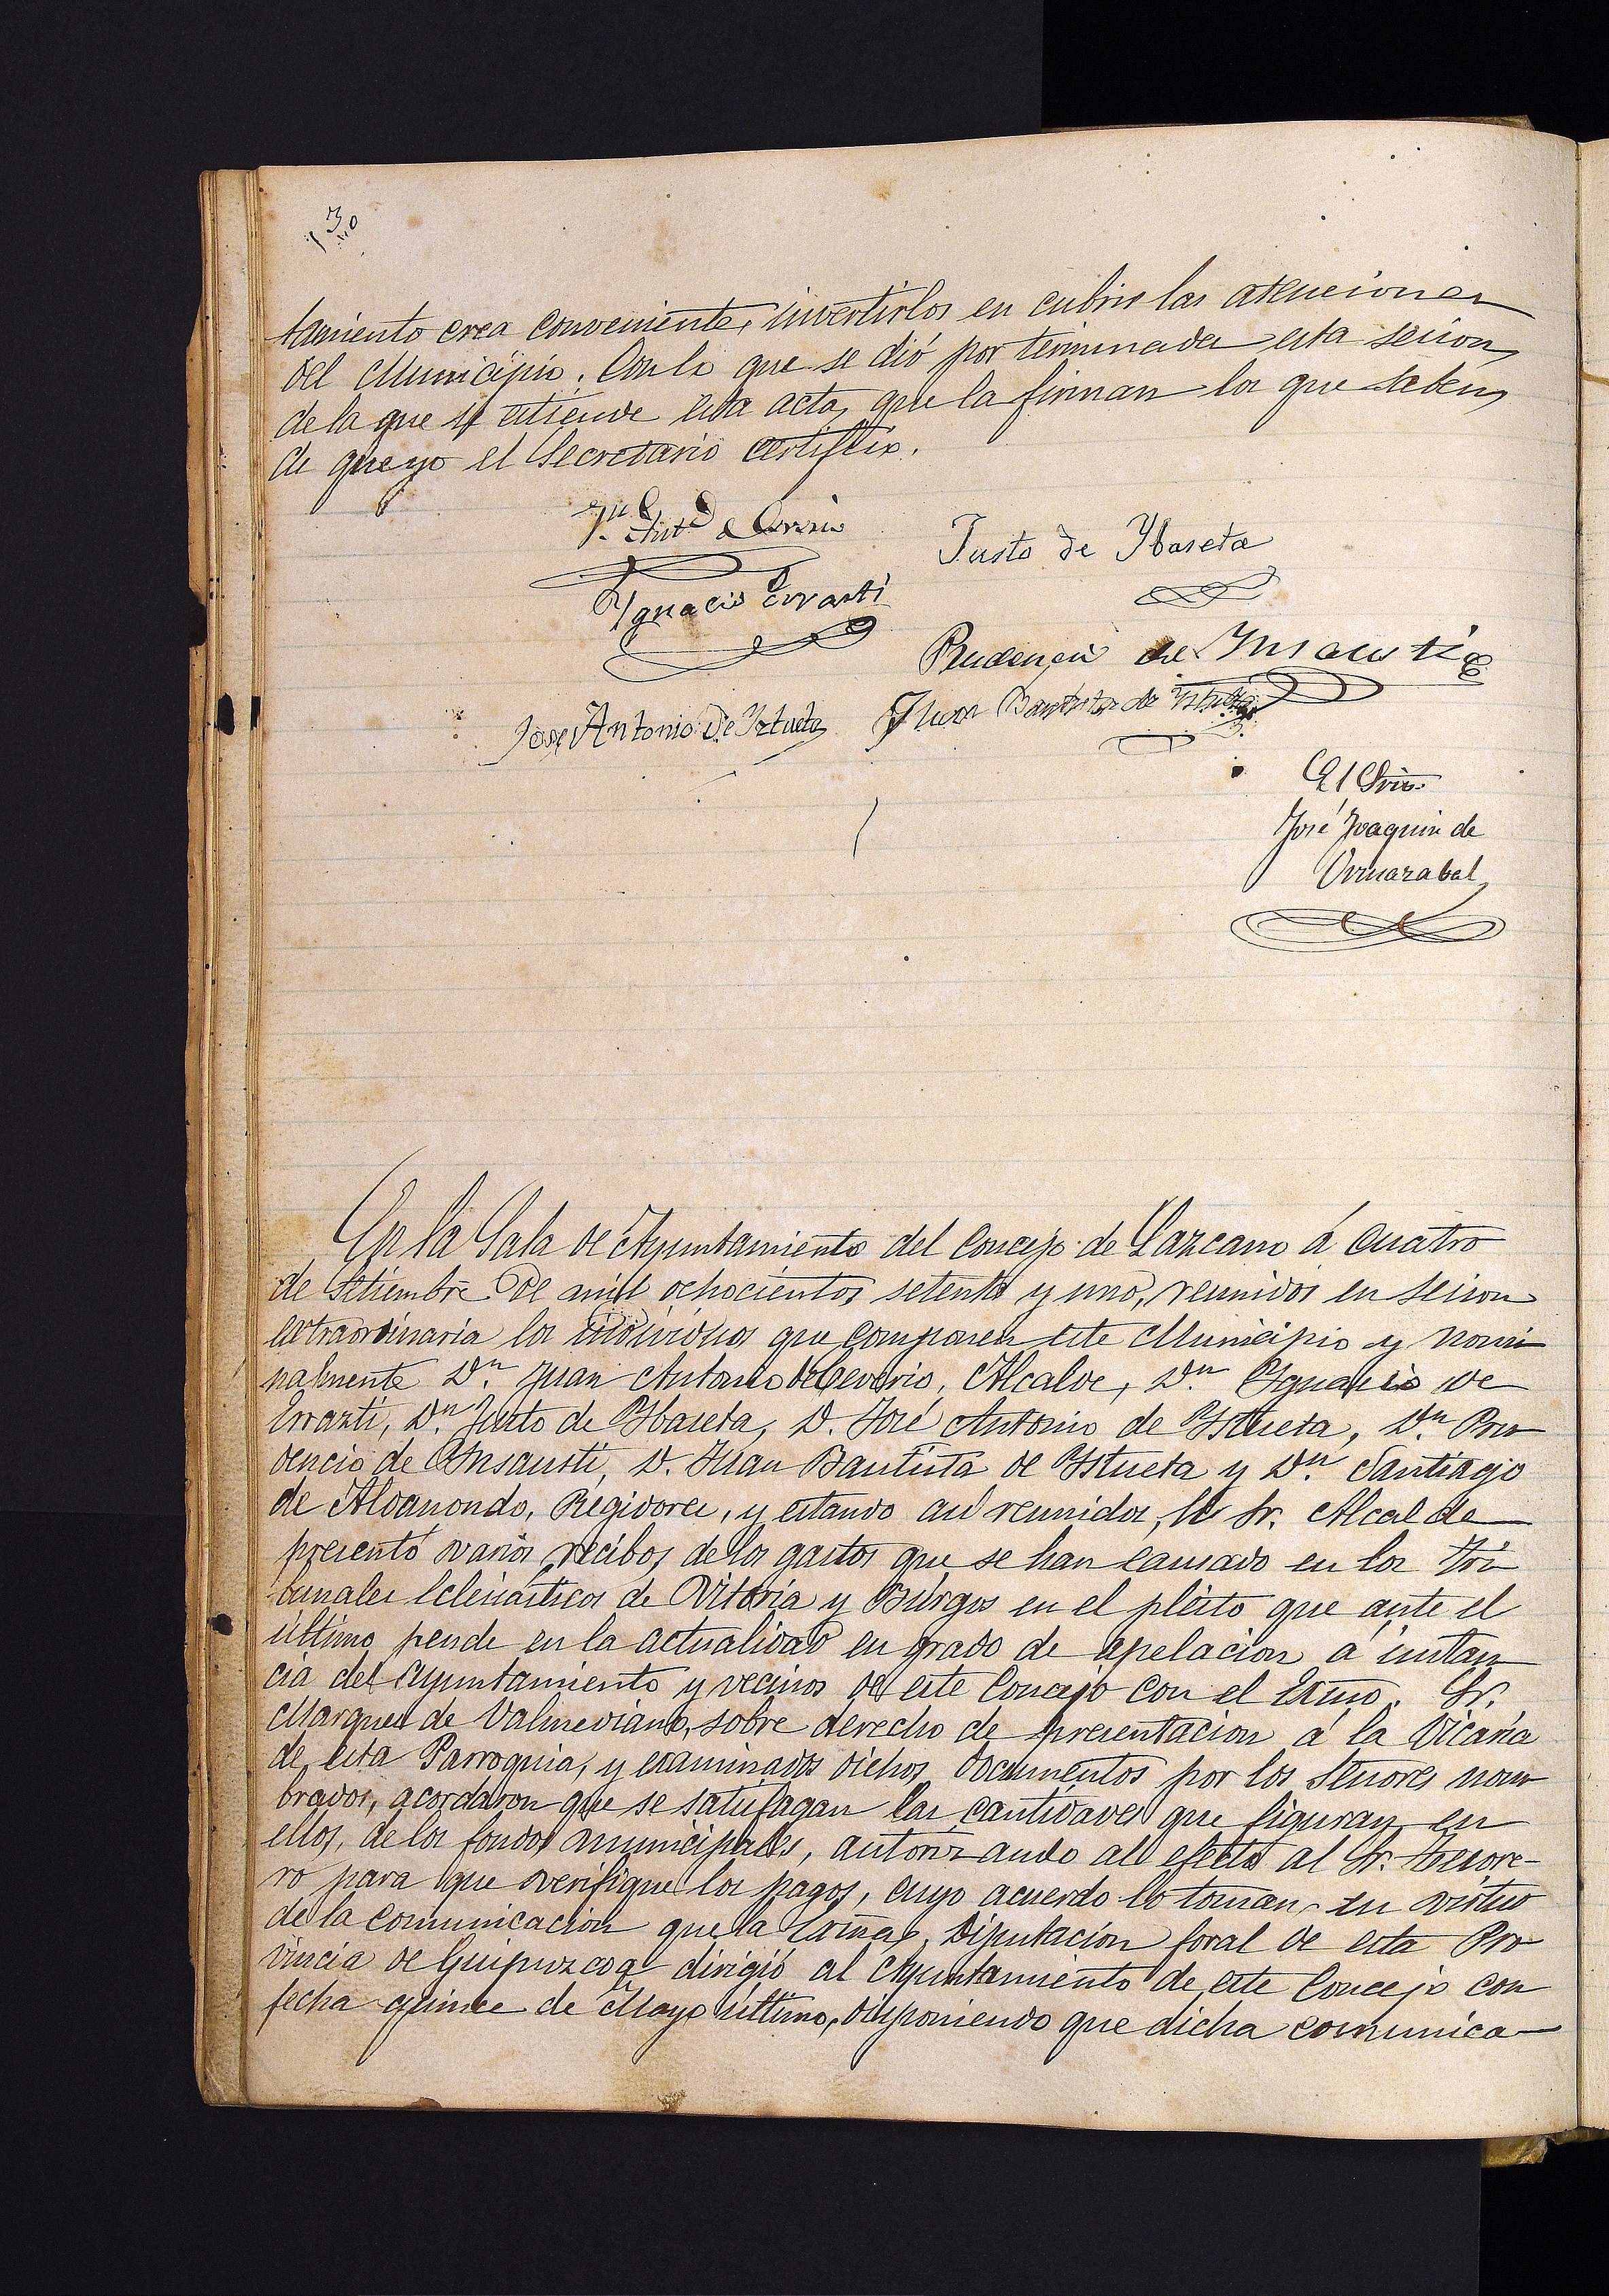 130
tamiento crea conveniente, invertirlos en cubrir las atenciones
del Municipio. Con lo que se dió por terminada esta sesion,
de la que se estiende esta acta, que la firman los que saben,
de que yo el Secretario certifico.
Jn. Anto de
Justo de Ybaseta
Ygnacio Errasti
Prudencio de Insausti
Jose Antonio De Yztueta
Juan Bautista de Yztueta
El Srio.
José Joaquin de
Ormazabal
En la Sala de Ayuntamiento del Concejo de Lazcano á cuatro
de Setiembre de mil ochocientos setenta y uno, reunidos en sesion
extraordinaria los individuos que componen este Municipio y nomi
nalmente Dn. Juan Antonio de, Alcalde, Dn. Ygnacio de
Errazti, Dn. Justo de Ybaseta, D. José Antonio de Yztueta, Dn. Pru
dencio de Insausti, D. Juan Bautista de Yztueta y Dn. Santiago
de Aldanondo, Regidores, y estando asi reunidos, el Sr. Alcalde
presentó varios recibos de los gastos que se han causado en los tri
bunales Eclesiásticos de Vitoria y Búrgos en el pléito que ante el
último pende en la actualidad en grado de apelacion á instan
cia del Ayuntamiento y vecinos de este Concejo con el Exmo. Sr.
Marques de Valmediano, sobre derecho de presentacion á la Vicaria
de esta Parroquia, y examinados dichos documentos por los Señores nom
brados, acordaron que se satisfagan las cantidades que figuran en
ellos, de los fondos municipales, autorizando al efecto al Sr. Tesore-
ro para que verifique los pagos, cuyo acuerdo lo toman en virtud
de la comunicacion que la Exma. Diputacion foral de esta Pro
vincia de Guipuzcoa dirigió al Ayuntamiento de este Concejo con
fecha quince de Mayo último, disponiendo que dicha comunica-